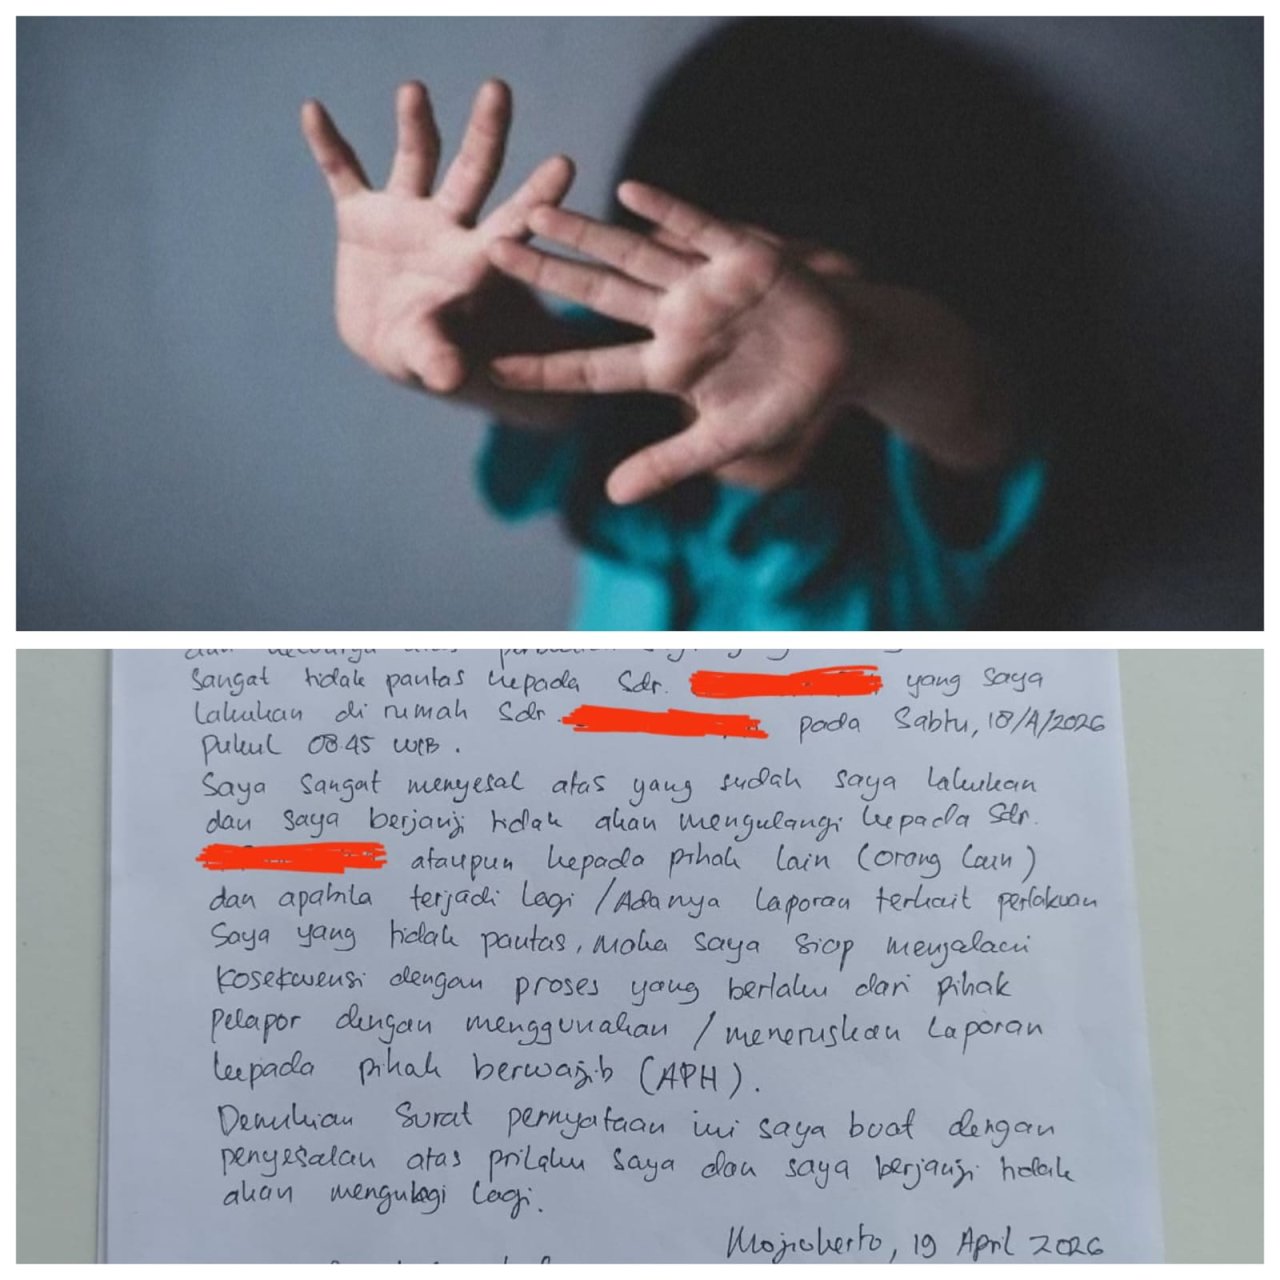 sangat tidak pantas kepada Sdr. yang saya
lakukan di rumah Sdr. pada Sabtu, 18/A/2026
pukul 08.45 WIB.
Saya sangat menyesal atas yang sudah saya lakukan
dan saya berjanji tidak akan mengulangi kepada Sdr.
ataupun kepada pihak lain (orang lain)
dan apabila terjadi lagi / Adanya laporan terkait perlakuan
Saya yang tidak pantas, maka saya siap menjalani
kosekwensi dengan proses yang berlaku dari pihak
pelapor dengan menggunakan / meneruskan laporan
kepada pihak berwajib (APH).
Demikian Surat pernyataan ini saya buat dengan
penyesalan atas prilaku saya dan saya berjanji tidak
akan mengulagi lagi.
Mojokerto, 19 April 2026